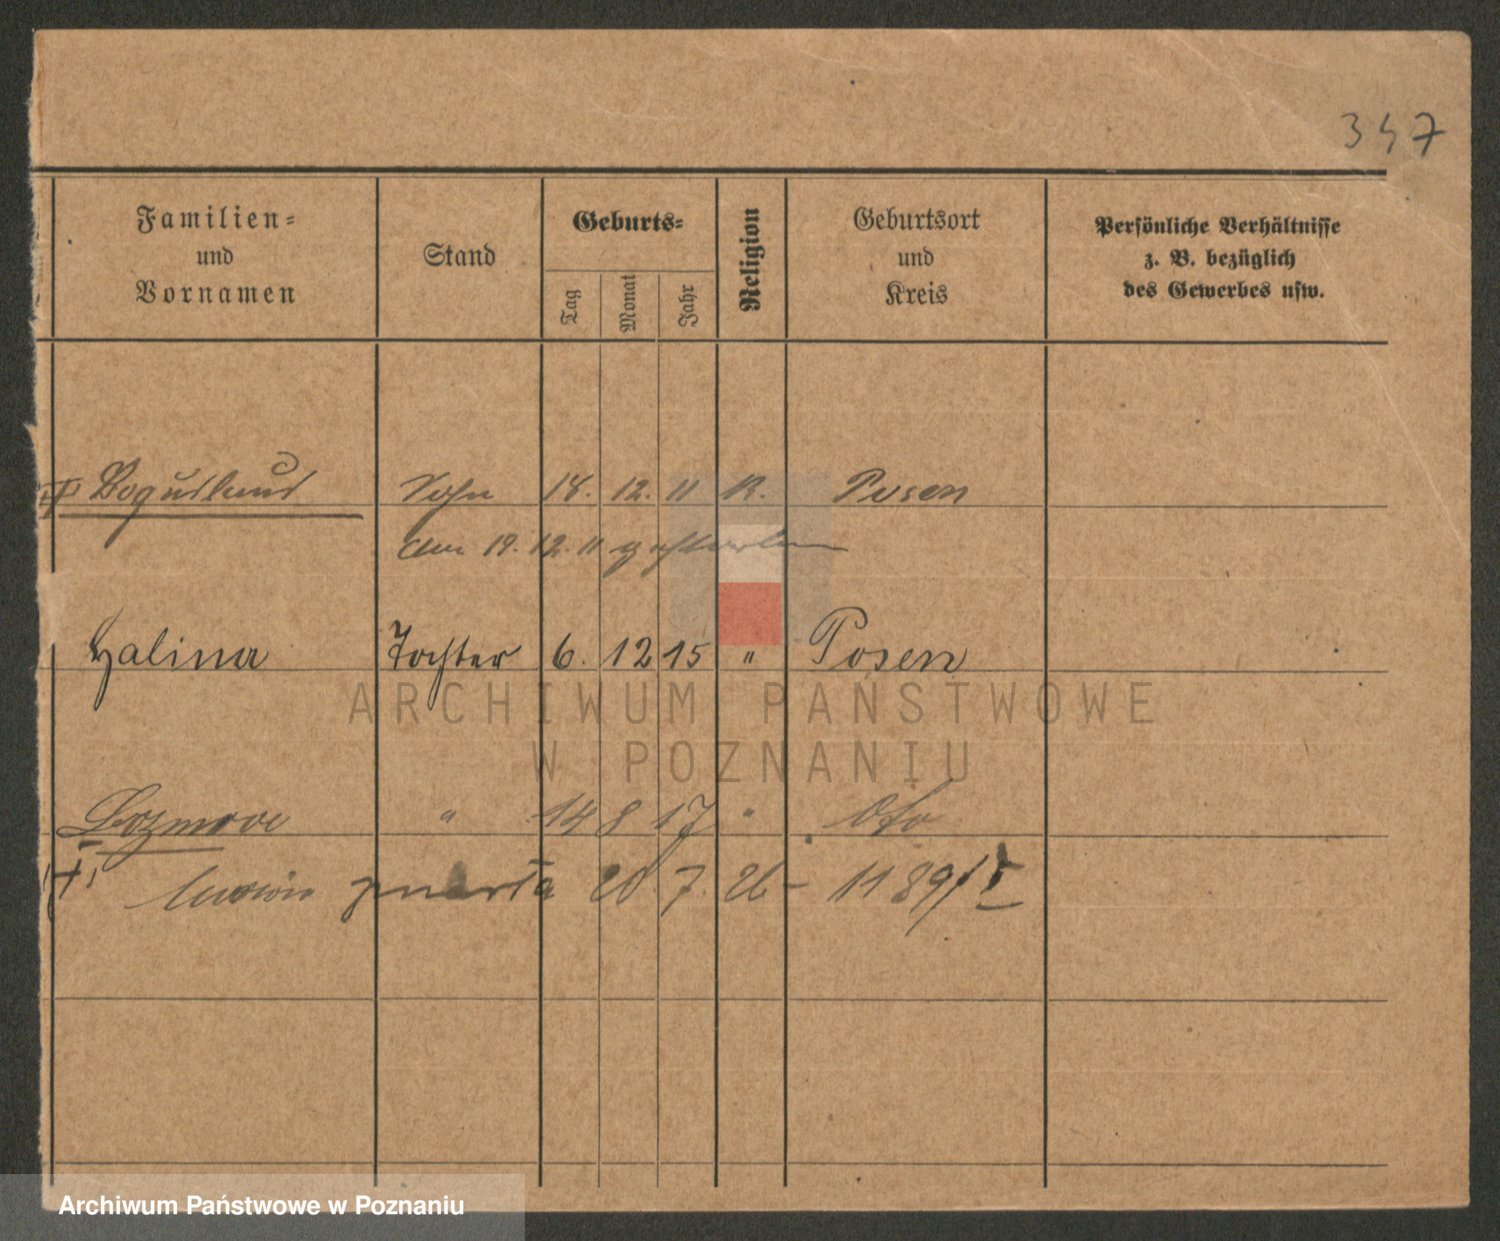 347
Familien-
und
Vornamen
Stand
Geburts-
Tag
Monat
Jahr
Religion
Geburtsort
und
Kreis
Persönliche Verhältnisse
z. B. bezüglich
des Gewerbes usw.
Sohn 18. 12. 11 K. Posen
am 19. 12. 11 gestorben
Halina Tochter 6. 12 15 " Posen
" 14 8 17 "
zmarła 20. 7. 26 - 1189/
ARCHIWUM PAŃSTWOWE
W POZNANIU
Archiwum Państwowe w Poznaniu